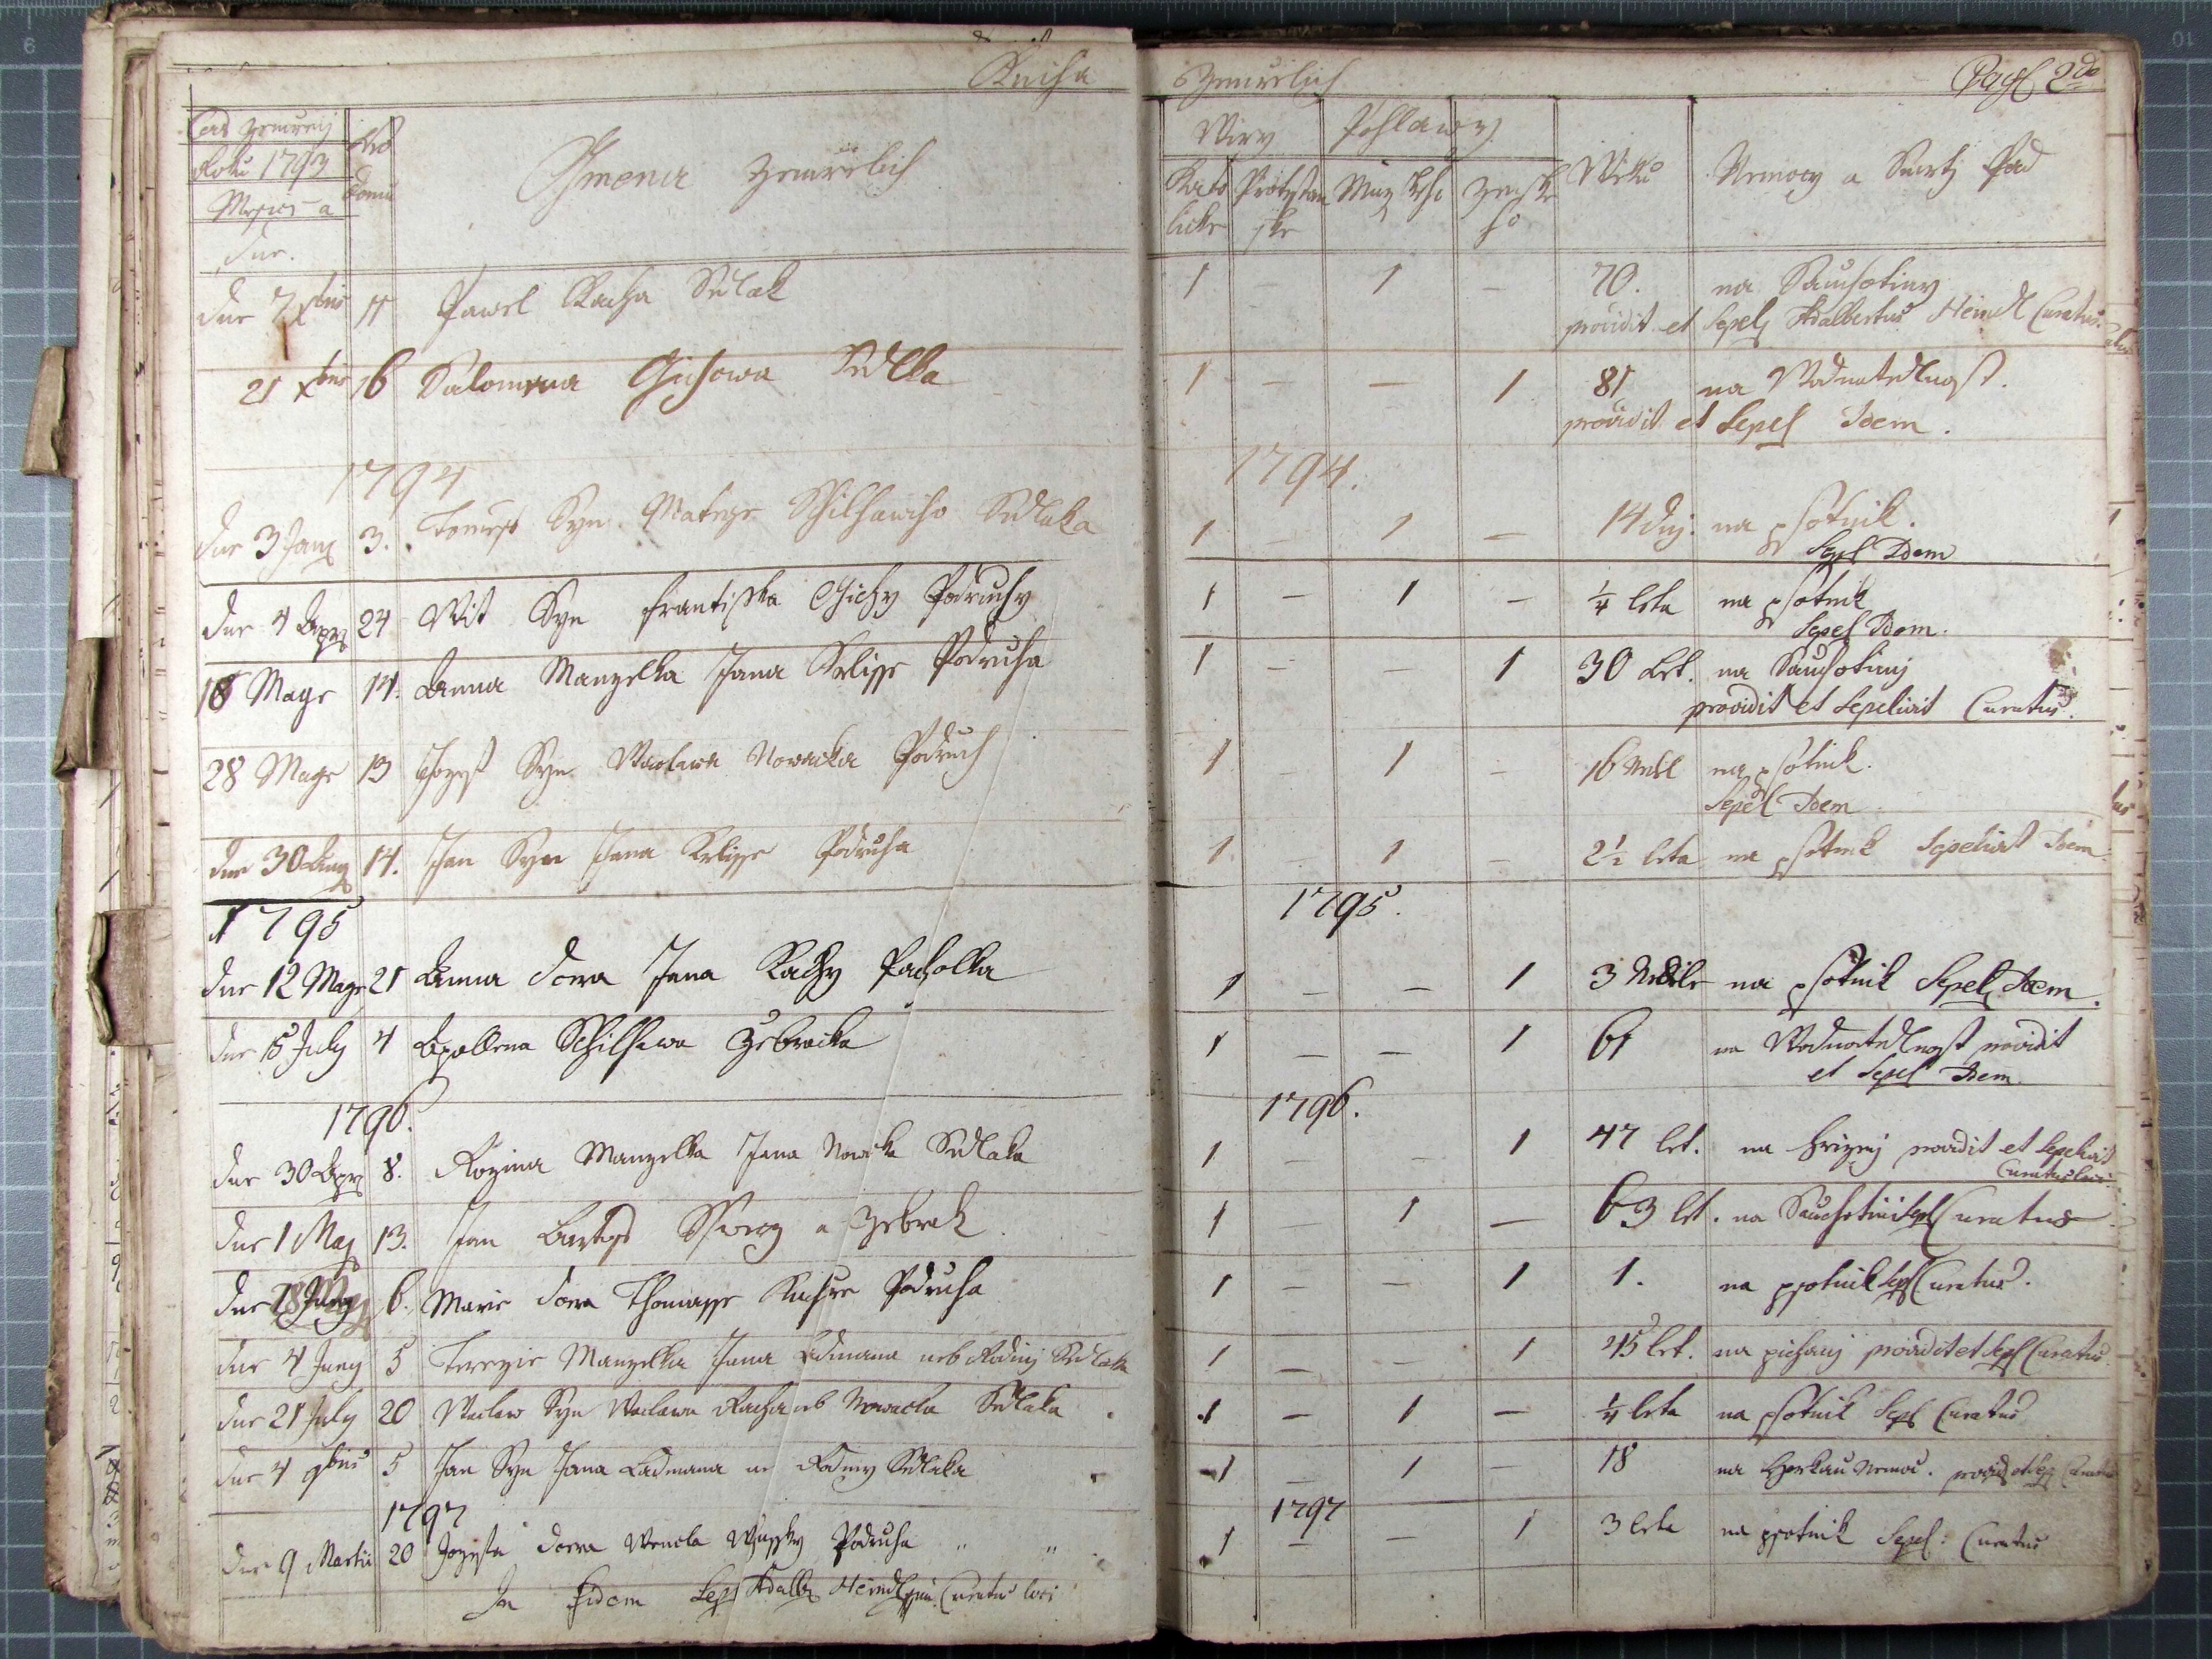 Kniha Zemřelich Pag 2da
Čas zemřenj
Roku 1793
Messice a
dne.
Nro domu
Gmena zemřelich
Wiry
Katolicke
Protestanske
Pohlawy
Muzskeho
Zenskeho
Wieku
Nemocy a Smrtj Pad
dne 7 Xbris 11 Pawel Kucha Sedlak 1 – 1 – 70. na Sauchotiny
providit et Sepel Adalbertus Heindl Curatus
21 Xbris 16 Salomena Gichowa Sedlka 1 – – 1 81 na Wodnatedlnost.
providit et Sepel Idem.
1794 1794.
dne 3 Jan 3. Syn Matege Schilhawiho Sedlaka 1 – 1 – 14 dnj. na psotnik.
Sepel Idem
dne 4 Apr 24 Wit Syn Frantisska Gichy Podruhy 1 – 1 – ¼ leta na psotnik
Sepel Idem.
18 Mage 14. Anna Manzelka Jana Podruha 1 – – 1 30 Let. na Sauchotinj
providit et Sepelivit Curatus.
28 Mage 13 Jozef Syn Waclawa Nowacka Podruh 1 – 1 – 16 Nedel na psotnik.
Sepel Idem
dne 30 Aug 14. Jan Syn Jana Podruha 1 – 1 – 2½ leta na psotnik Sepelivit Idem.
1795 1795.
dne 12 Mage 21 Anna dcera Jana Pacholka 1 – – 1 3 Nedele na psotnik Sepel Idem.
dne 15 July 4 Apollena Schilhawa Zebracka 1 – – 1 61 na Wodnatedlnost providit
et Sepel Idem
1796. 1796.
dne 30 Apr 8. Rozina Manzelka Jana Sedlaka 1 – – 1 47 let. na providit et Sepelivit
Curatus loci
dne 1 Maj 13. Jan a Zebrak 1 – 1 – 63 let. na Sauchotinj Sepel Curatus
dne Juny 6. Marie dcera Thomasse Podruha 1 – – 1 1. na psotnik Sepel Curatus.
dne 4 Juny 5 Terezie Manzelka Jana Ladmana neb Rodiny Sedlaka 1 – – 1 45 let. na pichanj providit et Sepel Curatus
dne 21 July 20 Waclaw Syn Waclawa neb Nowacka Sedlaka 1 – 1 – ¼ leta na psotnik Sepel Curatus
dne 4 9bris 5 Jan Syn Jana Ladmana Sedlaka 1 – 1 – 18 na Horkau Nemoc.
1797 1797
dne 9 Martii 20 Jozefa dcera Podruha " " 1 – – 1 3 leta na psotnik Sepel: Curatus
In Fidem Adalb Heindl Curatus loci